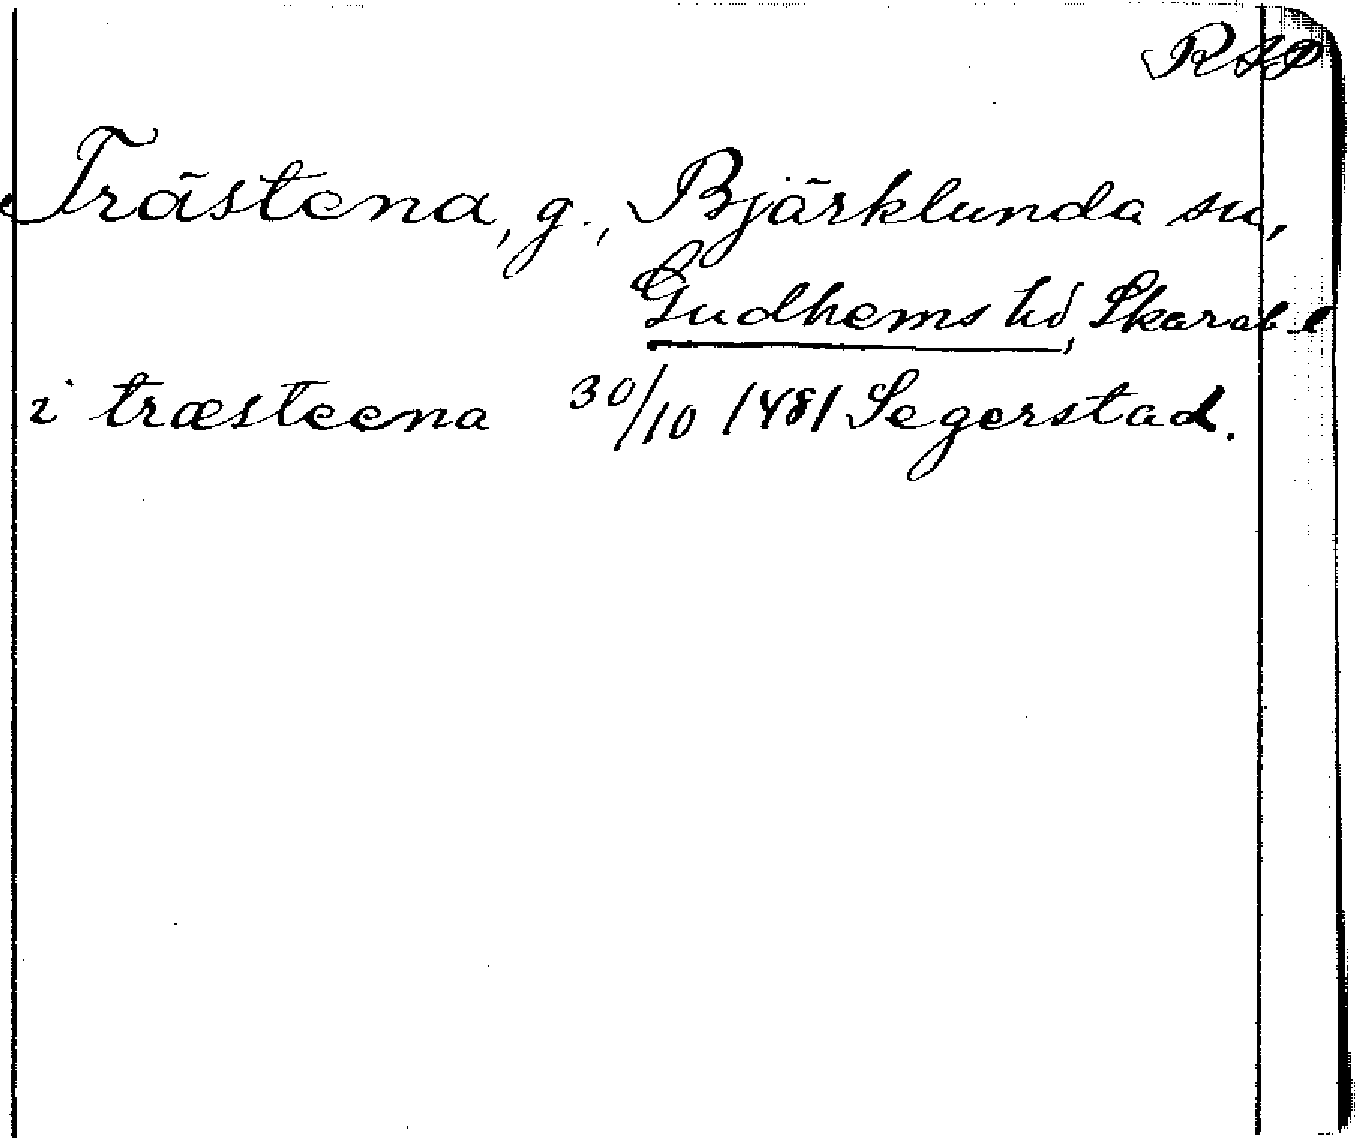 RAP
Trästena, g., Bjärklunda sn,
Gudhems hd, Skarab. l
i træsteena 30/10 1481 Segerstad.